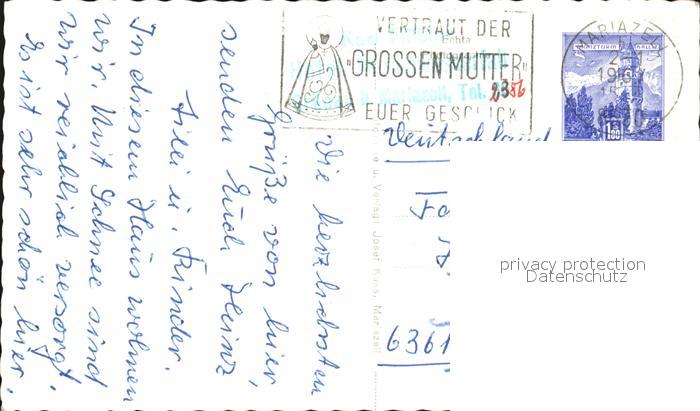 Die herzlichsten
Grüße von hier,
senden Euch Heinz
u. Kinder.
In diesem Haus wohnen
wir. Mit Schnee sind
wir reichlich versorgt.
Es ist sehr schön hier.
VERTRAUT DER
"GROSSEN MUTTER"
EUER GESCHICK
Echte
Mariazell, Tel.
2386
MARIAZELL
MÜNZTURM HALL
Deutschland
6361
u. Verlag: Josef Kuss, Mariazell
privacy protection
Datenschutz